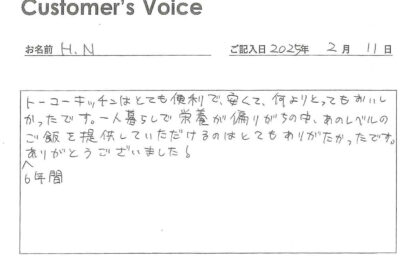 Customer's Voice
お名前 H.N ご記入日 2025年 2月 11日
トーコーキッチンはとても便利で、安くて、何よりとってもおいし
かったです。一人暮らしで栄養が偏りがちの中、あのレベルの
ご飯を提供していただけるのはとてもありがたかったです。
ありがとうございました!
^
6年間